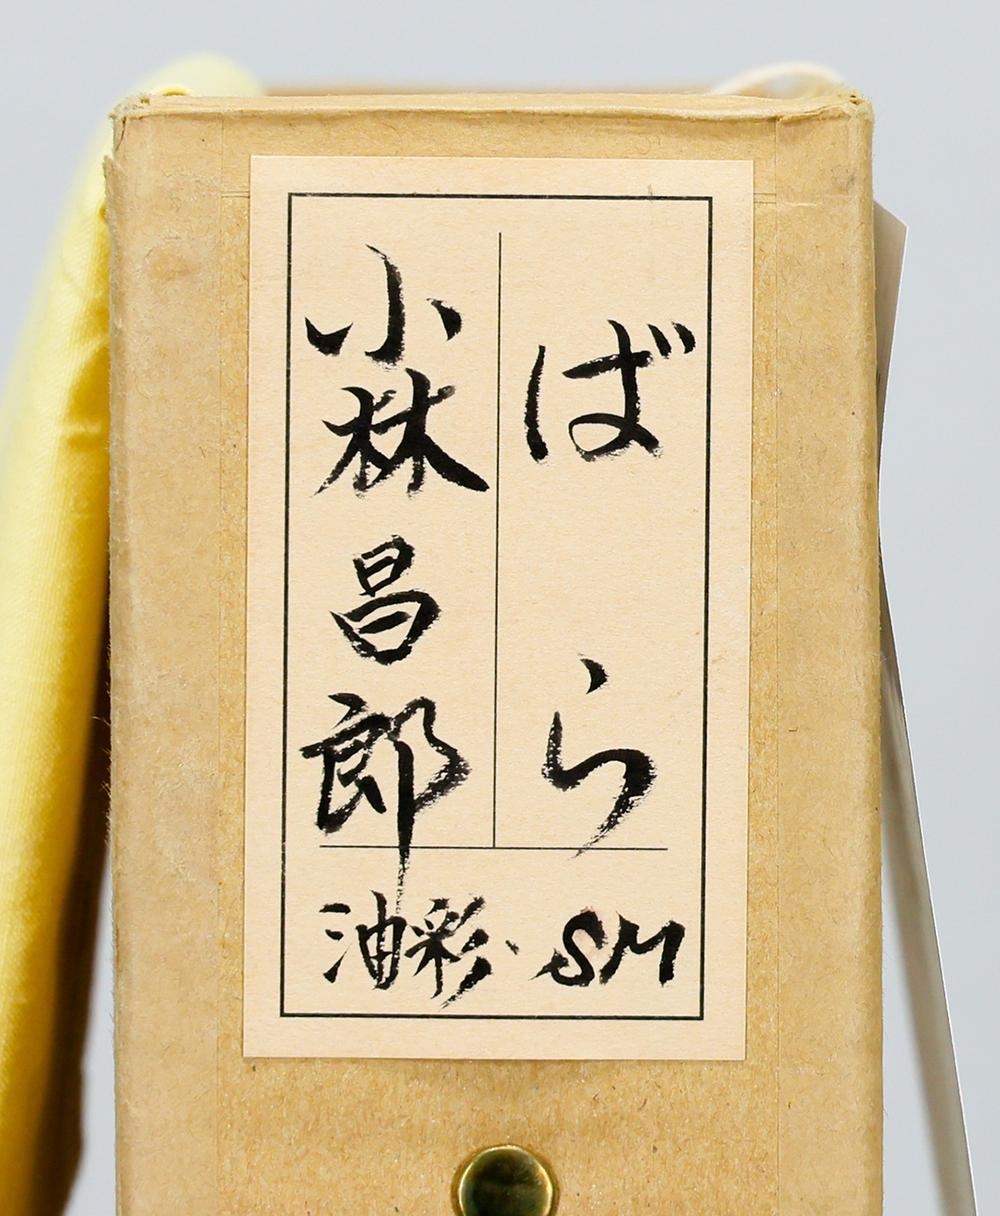 ばら
小林昌郎
油彩・SM